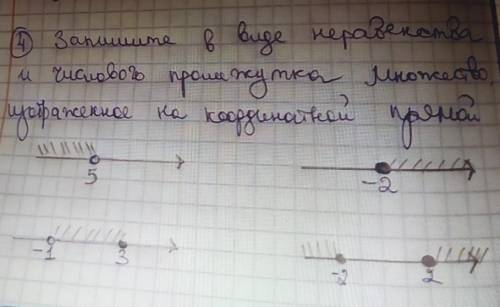 ④ Запишите в виде неравенства
и числового промежутка множество,
изображенное на координатной прямой
5
-2
-1 3
-2 2